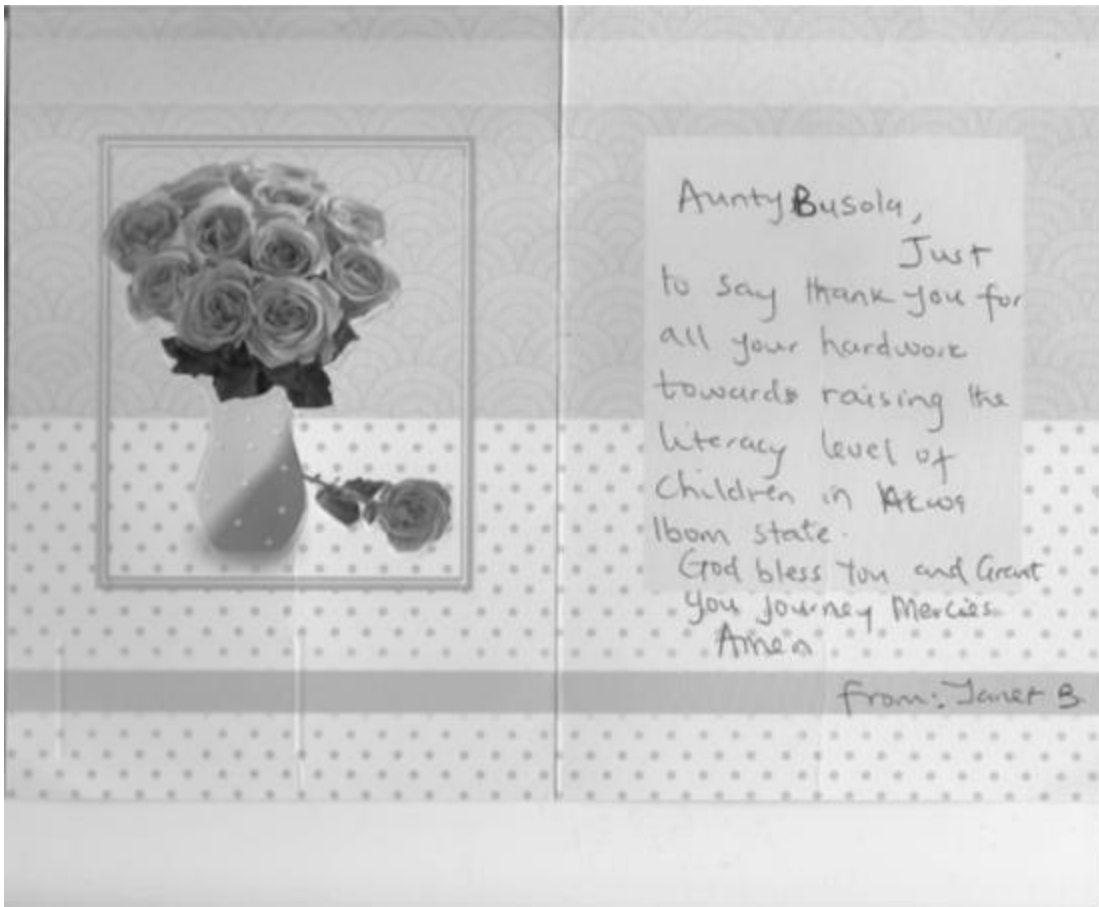 Aunty Busola,
Just
to say thank you for
all your hardwork
towards raising the
literacy level of
Children in Akwa
Ibom state.
God bless You and Grant
You Journey Mercies
Amen
from: Janet B